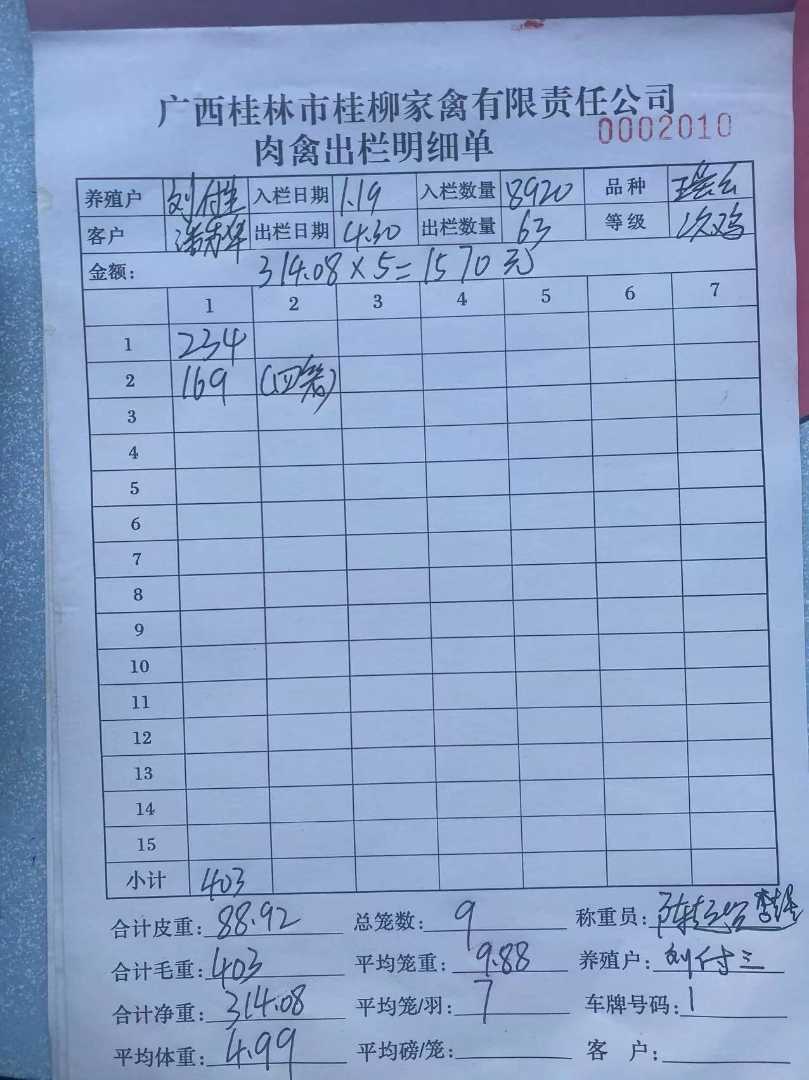 广西桂林市桂柳家禽有限责任公司
肉禽出栏明细单 0002010
养殖户 刘付 入栏日期 1.19 入栏数量 8920 品种
客户 出栏日期 4.30 出栏数量 63 等级 次鸡
金额: 314.08×5=1570元
1 2 3 4 5 6 7
1 234
2 169 (四笼)
3
4
5
6
7
8
9
10
11
12
13
14
15
小计 403
合计皮重: 88.92 总笼数: 9 称重员:
合计毛重: 403 平均笼重: 9.88 养殖户: 刘付三
合计净重: 314.08 平均笼/羽: 7 车牌号码: 1
平均体重: 4.99 平均磅/笼: 客 户: